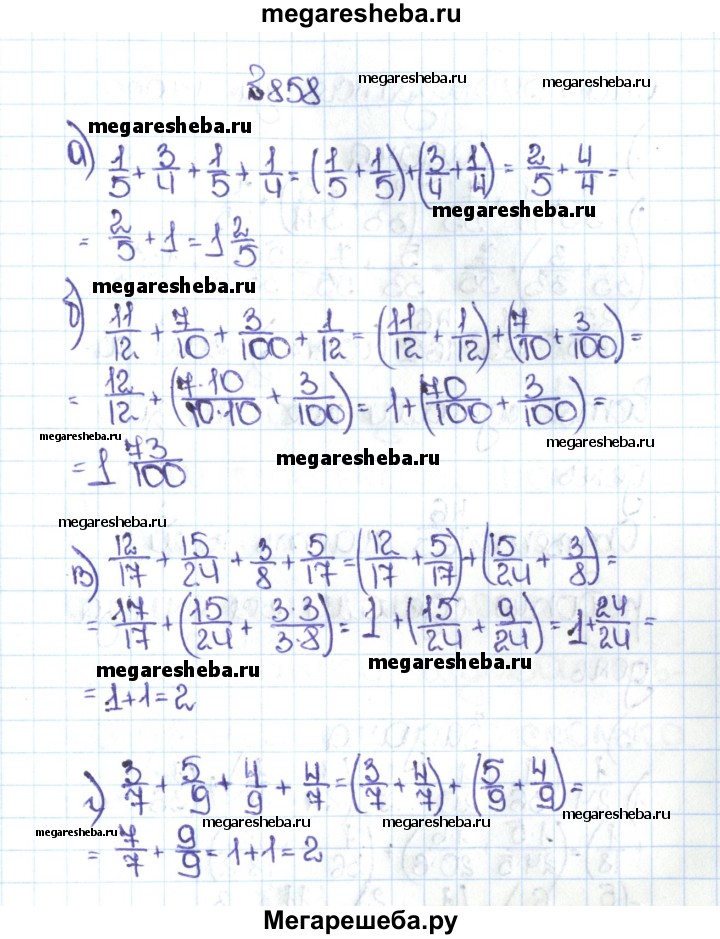 megaresheba.ru
№858 megaresheba.ru megaresheba.ru
megaresheba.ru
а) 1/5 + 3/4 + 1/5 + 1/4 = (1/5 + 1/5) + (3/4 + 1/4) = 2/5 + 4/4 =
megaresheba.ru
= 2/5 + 1 = 1 2/5
megaresheba.ru
б) 11/12 + 7/10 + 3/100 + 1/12 = (11/12 + 1/12) + (7/10 + 3/100) =
= 12/12 + (7·10/10·10 + 3/100) = 1 + (70/100 + 3/100) =
megaresheba.ru megaresheba.ru
= 1 73/100 megaresheba.ru
megaresheba.ru
в) 12/17 + 15/24 + 3/8 + 5/17 = (12/17 + 5/17) + (15/24 + 3/8) =
= 17/17 + (15/24 + 3·3/3·8) = 1 + (15/24 + 9/24) = 1 + 24/24 =
megaresheba.ru megaresheba.ru
= 1 + 1 = 2
г) 3/7 + 5/9 + 4/9 + 4/7 = (3/7 + 4/7) + (5/9 + 4/9) =
megaresheba.ru megaresheba.ru megaresheba.ru megaresheba.ru
= 7/7 + 9/9 = 1 + 1 = 2
Мегарешеба.ру